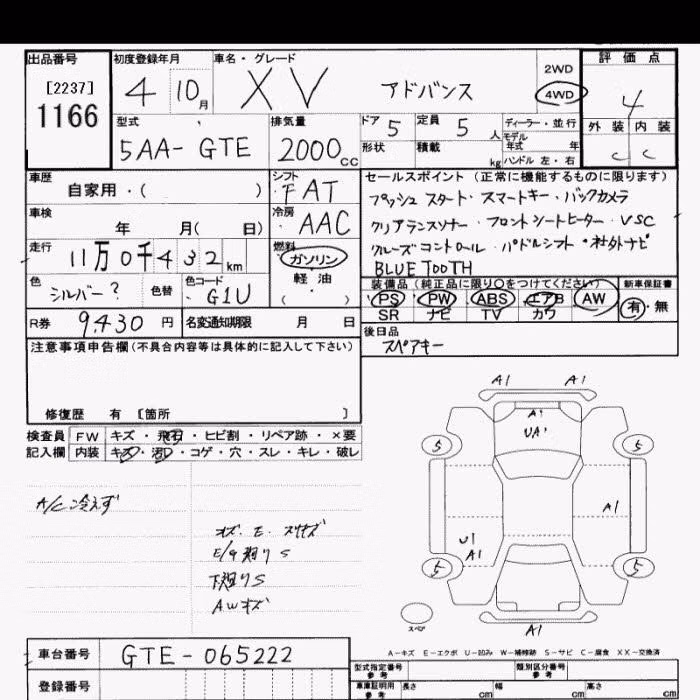 出品番号 初度登録年月 車名・グレード 評価点
[2237] 4 10月 XV アドバンス 2WD 4
1166 4WD
型式 排気量 ドア 5 定員 5人 ディーラー・並行 外装 内装
5AA-GTE 2000cc 形状 積載 kg モデル年式 年 C C
ハンドル 左・右
車歴 シフト セールスポイント（正常に機能するものに限ります）
自家用・（ ） FAT プッシュスタート・スマートキー・バックカメラ
車検 冷房 クリアランスソナー・フロントシートヒーター・VSC
年 月（ 日） AAC クルーズコントロール・パドルシフト・社外ナビ
走行 燃料 BLUETOOTH
11万0千432km ガソリン
色 色替 色コード 軽油 装備品（純正品に限り○をつけてください） 新車保証書
シルバー? G1U （ ） PS PW ABS エアB AW 有・無
SR ナビ TV カワ
R券 9,430円 名変通知期限 月 日 後日品
注意事項申告欄（不具合内容等は具体的に記入して下さい） スペアキー
修復歴 有 [箇所 ]
検査員 FW キズ・飛石・ヒビ割・リペア跡・×要
記入欄 内装 キズ・コゲ・穴・スレ・キレ・破レ
A1 A1
A1
UA'
5 5
A/C冷えず
A1
U1
A1
E/G廻りS
下廻りS
AWキズ
5 5
スペア
A1
A-キズ E-エクボ U-凹み W-補修跡 S-サビ C-腐食 XX-交換済
車台番号 GTE-065222 型式指定番号 参考 類別区分番号 参考
登録番号 車庫証明用 参考 長さ cm 幅 cm 高さ cm